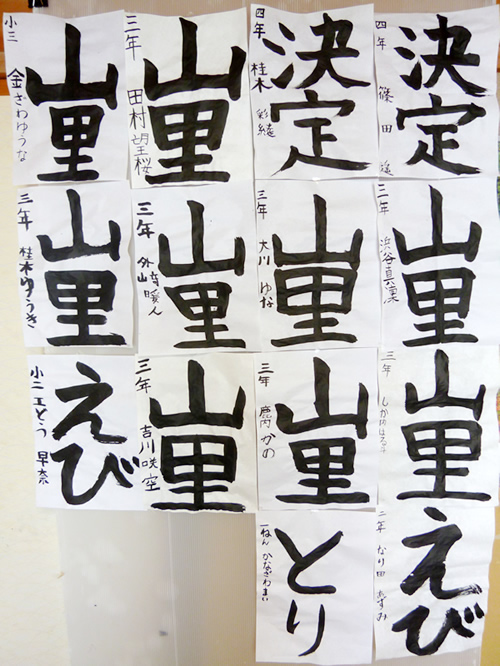 決定
四年 篠田
決定
四年 桂木 彩綾
山里
三年 田村望桜
山里
小三 金ざわゆうな
山里
三年 浜谷真凜
山里
三年 大川 ゆな
山里
三年 外崎暖人
山里
三年 桂木ゆうき
山里
三年
山里
三年 鹿内かの
山里
三年 吉川咲空
えび
小二 工とう 早奈
えび
二年 なり田 あずみ
とり
一ねん かなざわまい